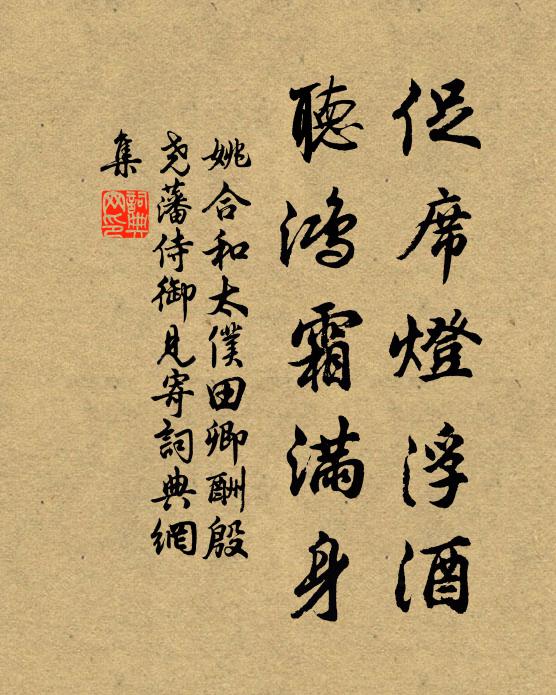 促席燈浮酒
聽鴻霜滿身
姚合和太僕田卿酬殷
尧藩侍御見寄詞典網
集
詞典網印